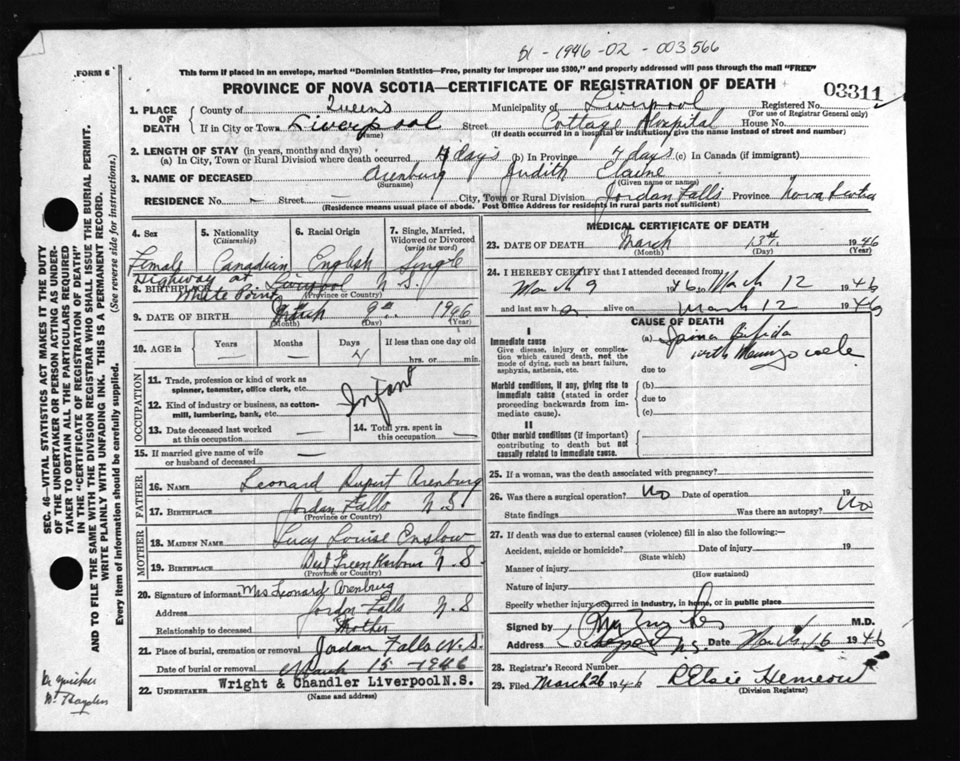 1946-02-003566
FORM 6
This form if placed in an envelope, marked "Dominion Statistics—Free, penalty for improper use $300," and properly addressed will pass through the mail "FREE"
PROVINCE OF NOVA SCOTIA—CERTIFICATE OF REGISTRATION OF DEATH
03311
1. PLACE OF DEATH
County of Queens Municipality of Liverpool Registered No.
(For use of Registrar General only)
If in City or Town Liverpool Street Cottage Hospital House No.
(Name) (If death occurred in a hospital or institution, give the name instead of street and number)
2. LENGTH OF STAY (in years, months and days)
(a) In City, Town or Rural Division where death occurred 4 days (b) In Province 4 days (c) In Canada (if immigrant)
3. NAME OF DECEASED Arenburg Judith Elaine
(Surname) (Given name or names)
RESIDENCE No. – Street — City, Town or Rural Division Jordan Falls Province Nova Scotia
(Residence means usual place of abode. Post Office Address for residents in rural parts not sufficient)
4. Sex
Female
5. Nationality
(Citizenship)
Canadian
6. Racial Origin
English
7. Single, Married, Widowed or Divorced
(write the word)
Single
Highway at
8. BIRTHPLACE White Point Liverpool N.S.
(Province or Country)
9. DATE OF BIRTH March 9th 1946
(Month) (Day) (Year)
10. AGE in
Years
–
Months
–
Days
4
If less than one day old
hrs. or min.
OCCUPATION
11. Trade, profession or kind of work as spinner, teamster, office clerk, etc.
Infant
12. Kind of industry or business, as cotton-mill, lumbering, bank, etc.
13. Date deceased last worked at this occupation —
14. Total yrs. spent in this occupation —
15. If married give name of wife or husband of deceased —
FATHER
16. NAME Leonard Rupert Arenburg
17. BIRTHPLACE Jordan Falls N.S.
(Province or Country)
MOTHER
18. MAIDEN NAME Lucy Louise Enslow
19. BIRTHPLACE Green Harbour N.S.
(Province or Country)
20. Signature of informant Mrs Leonard Arenburg
Address Jordan Falls N.S
Relationship to deceased Mother
21. Place of burial, cremation or removal Jordan Falls N.S.
Date of burial or removal March 15 – 1946
22. UNDERTAKER Wright & Chandler Liverpool N.S.
(Name and address)
MEDICAL CERTIFICATE OF DEATH
23. DATE OF DEATH March 13th 1946
(Month) (Day)
24. I HEREBY CERTIFY that I attended deceased from
March 9 1946 to March 12 1946
and last saw h alive on March 12 1946
CAUSE OF DEATH
I
Immediate cause
Give disease, injury or complication which caused death, not the mode of dying, such as heart failure, asphyxia, asthenia, etc.
(a) Spina Bifida
with
due to
Morbid conditions, if any, giving rise to immediate cause (stated in order proceeding backwards from immediate cause).
(b)
due to
(c)
II
Other morbid conditions (if important) contributing to death but not causally related to immediate cause.
25. If a woman, was the death associated with pregnancy?
26. Was there a surgical operation? No Date of operation 19
State findings Was there an autopsy? No
27. If death was due to external causes (violence) fill in also the following:—
Accident, suicide or homicide? Date of injury 19
(State which)
Manner of injury
(How sustained)
Nature of injury
Specify whether injury occurred in industry, in home, or in public place
Signed by M.D.
Address N.S. Date March 16 1946
28. Registrar's Record Number
29. Filed March 26 1946
(Division Registrar)
SEC. 46—VITAL STATISTICS ACT MAKES IT THE DUTY OF THE UNDERTAKER OR PERSON ACTING AS UNDERTAKER TO OBTAIN ALL THE PARTICULARS REQUIRED IN THE "CERTIFICATE OF REGISTRATION OF DEATH" AND TO FILE THE SAME WITH THE DIVISION REGISTRAR WHO SHALL ISSUE THE BURIAL PERMIT.
WRITE PLAINLY WITH UNFADING INK. THIS IS A PERMANENT RECORD.
Every item of information should be carefully supplied. (See reverse side for instructions.)